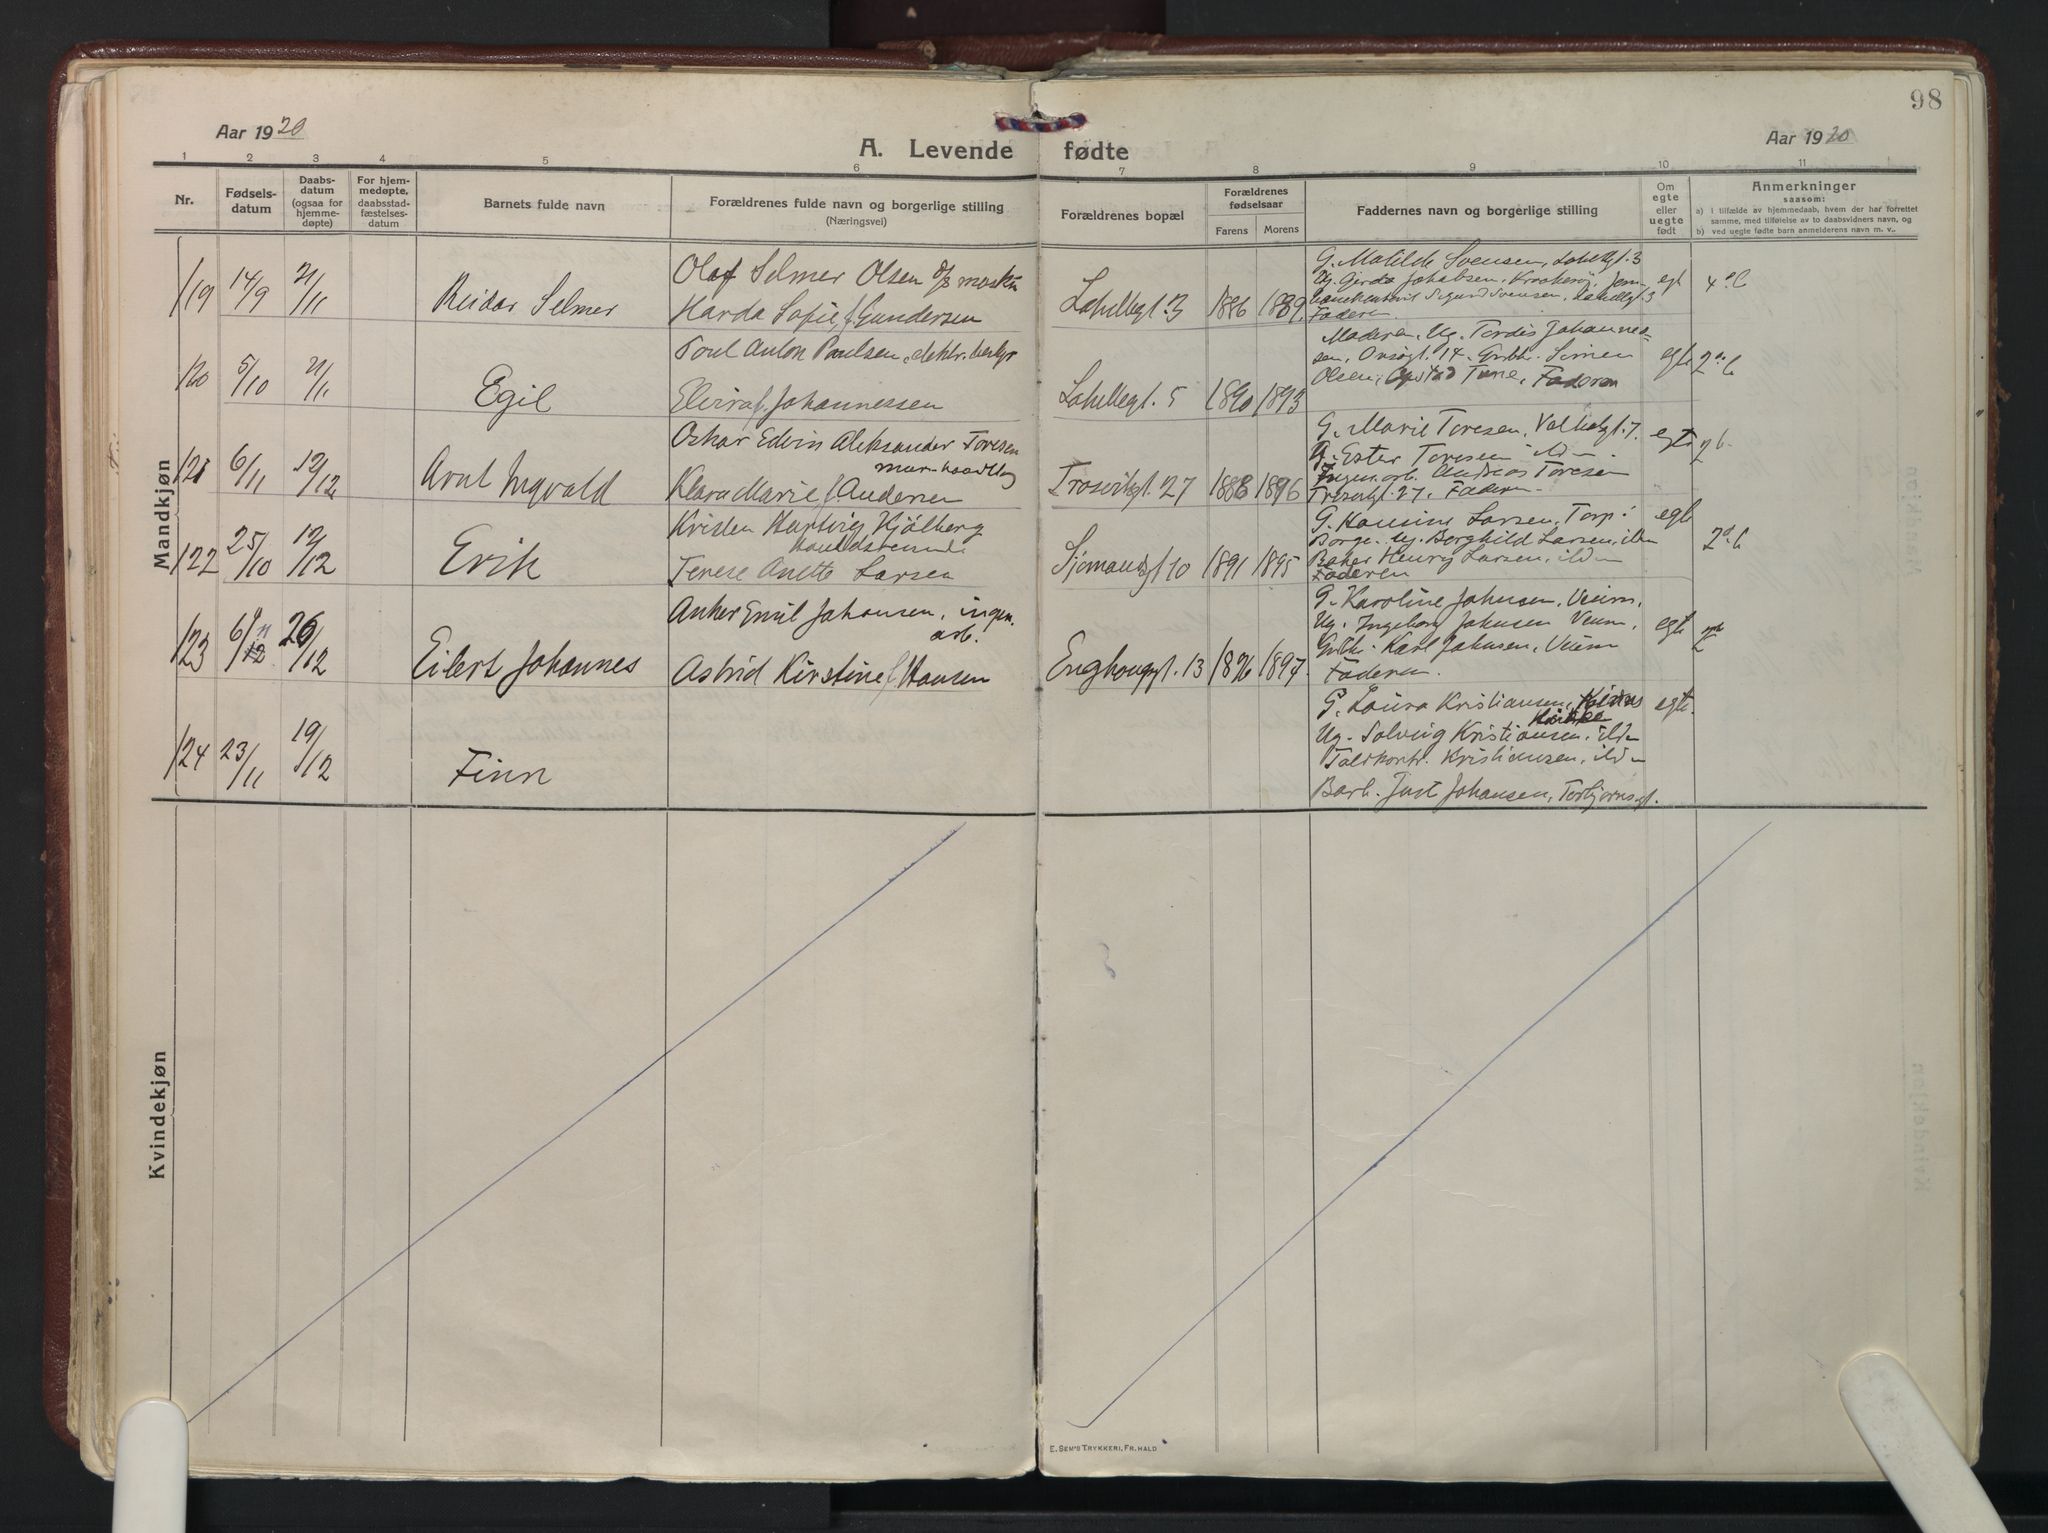 98
Aar 1920
A. Levende fødte
Aar 1920
1 2 3 4 5 6 7 8 9 10 11
Nr.
Fødsels-
datum
Daabs-
datum
(ogsaa for
hjemme-
døpte)
For hjem-
medøpte,
daabsstad-
fæstelses-
datum
Barnets fulde navn
Forældrenes fulde navn og borgerlige stilling
(Næringsvei)
Forældrenes bopæl
Forældrenes
fødselsaar
Farens Morens
Faddernes navn og borgerlige stilling
Om
egte
eller
uegte
født
Anmerkninger
saasom:
a) i tilfælde av hjemmedaab, hvem der har forrettet
samme, med tilføielse av to daabsvidners navn, og
b) ved uegte fødte barn anmelderens navn m. v..
Mandkjøn
119 14/9 21/11 Reidar Selmer
Olaf Selmer Olsen
Harda Sofie f. Gundersen
Lahellegt. 3 1886 1889.
G. Matilde Svensen, Lahellgt. 3
Ug. Gerda
Sigurd Svensen, Lahellgt. 3
Faderen
egt 4
120 5/10 21/11 Egil
Poul Anton Paulsen, elektr. bestyr
Elvira f. Johannessen
Lahellegt. 5 1890 1893
Moderen, Ug. Tordis Johannes-
sen, Orsøgt. 14. Grbbr. Simen
Olsen, Opstad Tune, Faderen
egte
121 6/11 12/12 Arnt Ingvald
Oskar Edvin Aleksander Toresen
Klara Marie f. Andersen
Trosvikgt. 27 1888 1896
G. Marie Toresen, Valhalgt. 7.
Ug. Ester Toresen ilden
Ingen. arb. Andreas Toresen
Trosvikgt. 27, Faderen
egte 2 b.
122 25/10 12/12 Erik
Kristen Hartvig Hjólberg
handelsreisende
Terese Anette Larsen
Sjømandsgt 10 1891 1895
G. Hansine Larsen, Torp i
Borge. Ug. Borghild Larsen, ilden
Baker Henry Larsen, ilden
Faderen
egte
123 6/11 26/12 Eilert Johannes
Anker Emil Johansen, ingen.
arb.
Astrid Kirstine f. Hansen
Enghaugsgt. 13 1896 1897.
G. Karoline Johnsen, Veum,
Ug. Ingeborg Johnsen Veum,
Grbbr. Karl Johnsen, Veum
Faderen.
egte
124 23/11 19/12 Finn
G. Laura Kristiansen,
Ug. Solveig Kristiansen, ilden
Toldkontr. Kristiansen, ilden
Barb. Just Johansen, Torbjørnsgt.
egte.
Kvindekjøn
E. SEM'S TRYKKERI, FR.HALD